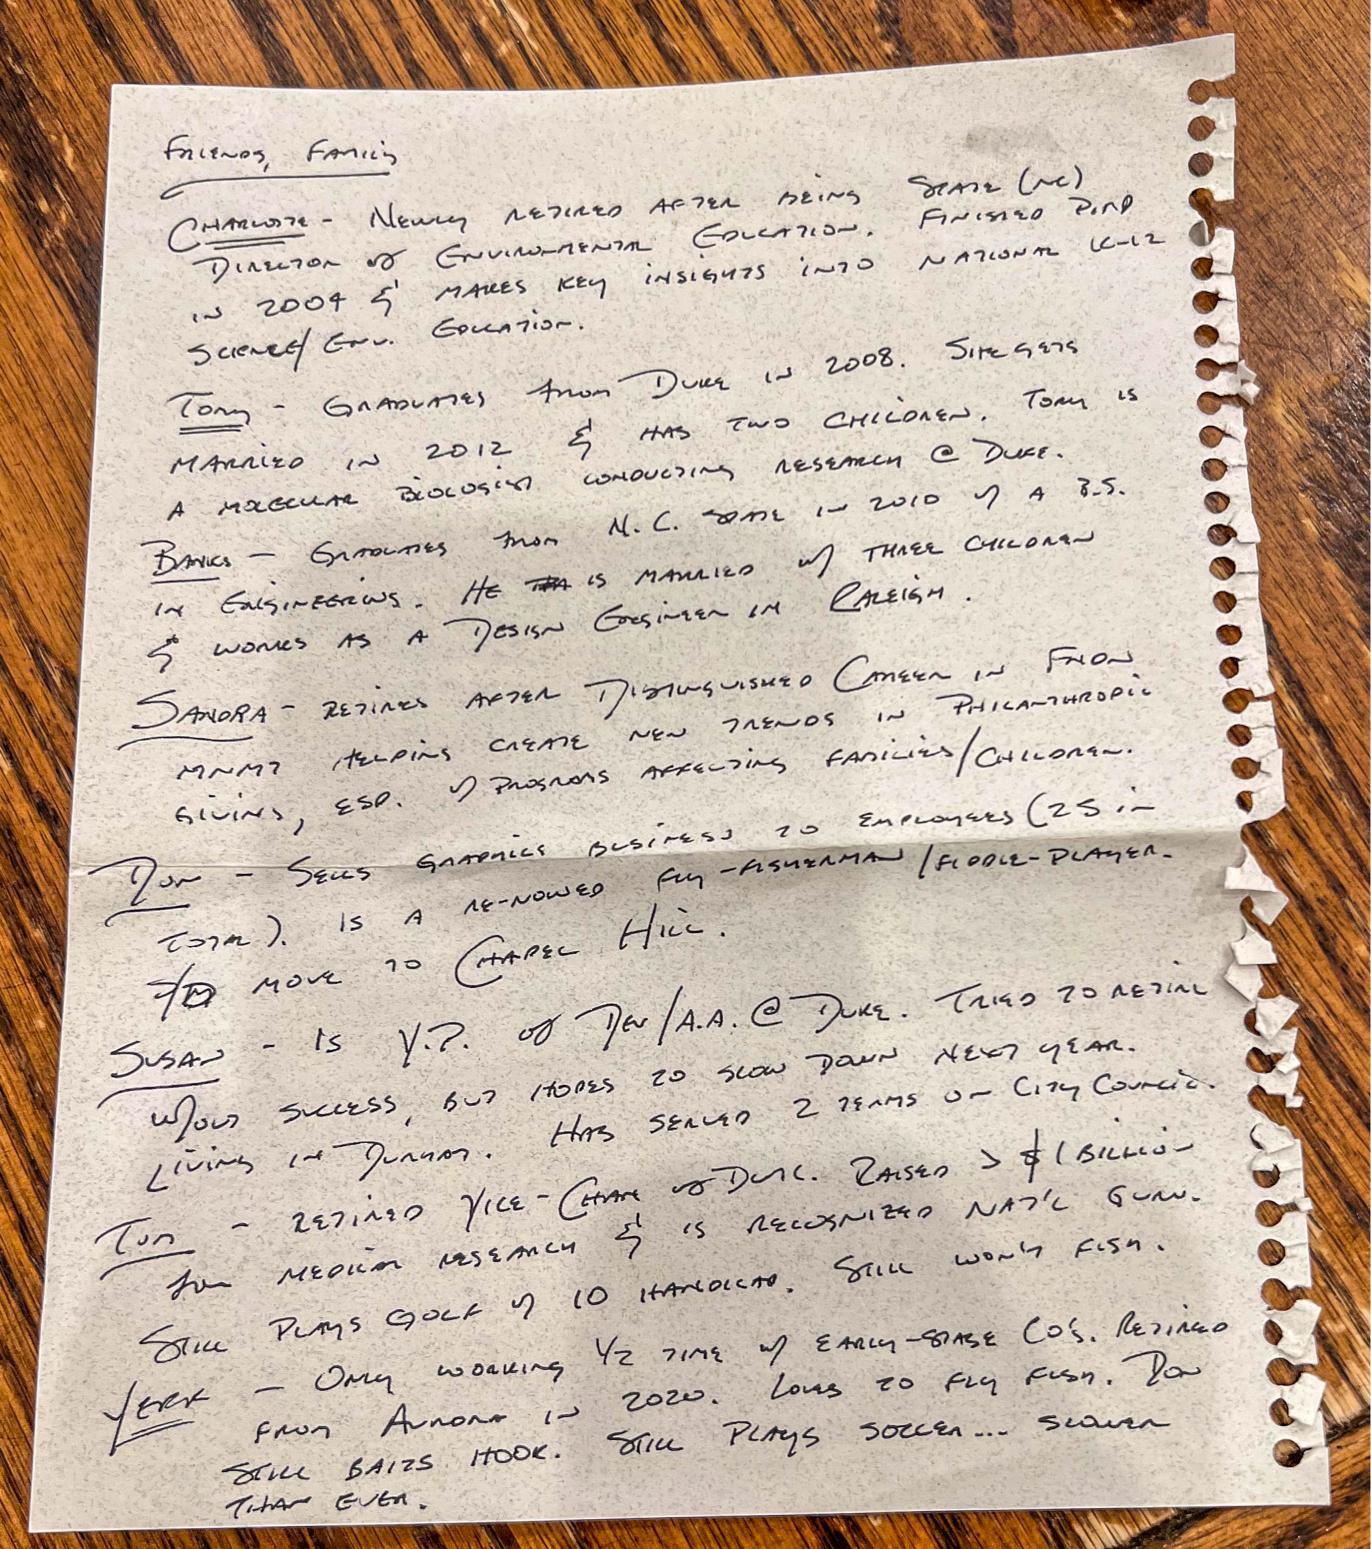 Friends, Family
Charlotte - Newly retired after being State (NC)
Director of Environmental Education. Finished PhD
in 2004 & makes key insights into national K-12
Science/Env. Education.
Tory - Graduates from Duke in 2008. She gets
married in 2012 & has two children. Tory is
a molecular biologist conducting research @ Duke.
Banks - Graduates from N.C. State in 2010 w/ a B.S.
in Engineering. He is married w/ three children
& works as a Design Engineer in Raleigh.
Sandra - retires after Distinguished Career in Fndn
Mnmt helping create new trends in Philanthropic
Giving, esp. w/ programs affecting families/children.
Don - Sells graphics business to employees (25 in
total). Is a re-nowed fly-fisherman/fiddle-player.
move to Chapel Hill.
Susan - Is V.P. of Dev/A.A. @ Duke. Tried to retire
w/out success, but hopes to slow down next year.
Living in Durham. Has served 2 terms on City Council.
Tom - retired Vice-Chan of Duke. Raised > $1 Billion
for medical research & is recognized nat'l guru.
Still plays golf w/ 10 handicap. Still won't fish.
Jerk - Only working 1/2 time w/ early-stage co's. Retired
from Aurora in 2020. Loves to fly fish. Don
still baits hook. Still plays soccer... slower
than ever.